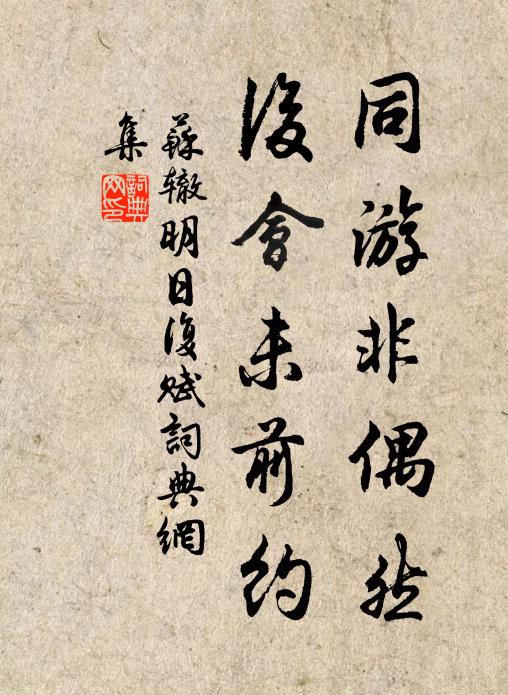 同游非偶然
後會未前約
蘇轍明日復賦詞典網
集
詞典
网印